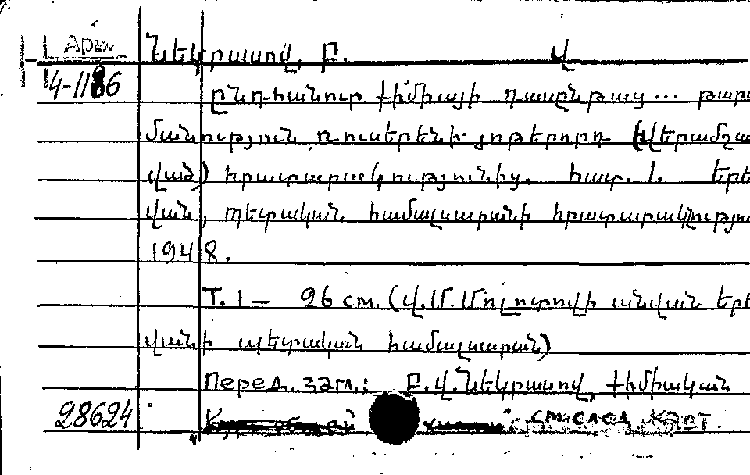 Арм. Նեկրասով, Բ. Վ
4-1186 Ընդհանուր քիմիայի դասընթաց... թարգ
մանություն ռուսերենի յոթերորդ (վերամշա
ված) հրատարակությունից. հատ. 1. Երե
վան, պետական համալսարանի հրատարակչությու
1948.
Т. 1 — 26 см. (Վ. Մ. Մոլոտովի անվան Երե
վանի պետական համալսարան)
Перед. загл.: Բ. Վ. Նեկրասով, քիմիական
28624 см. след. карт.